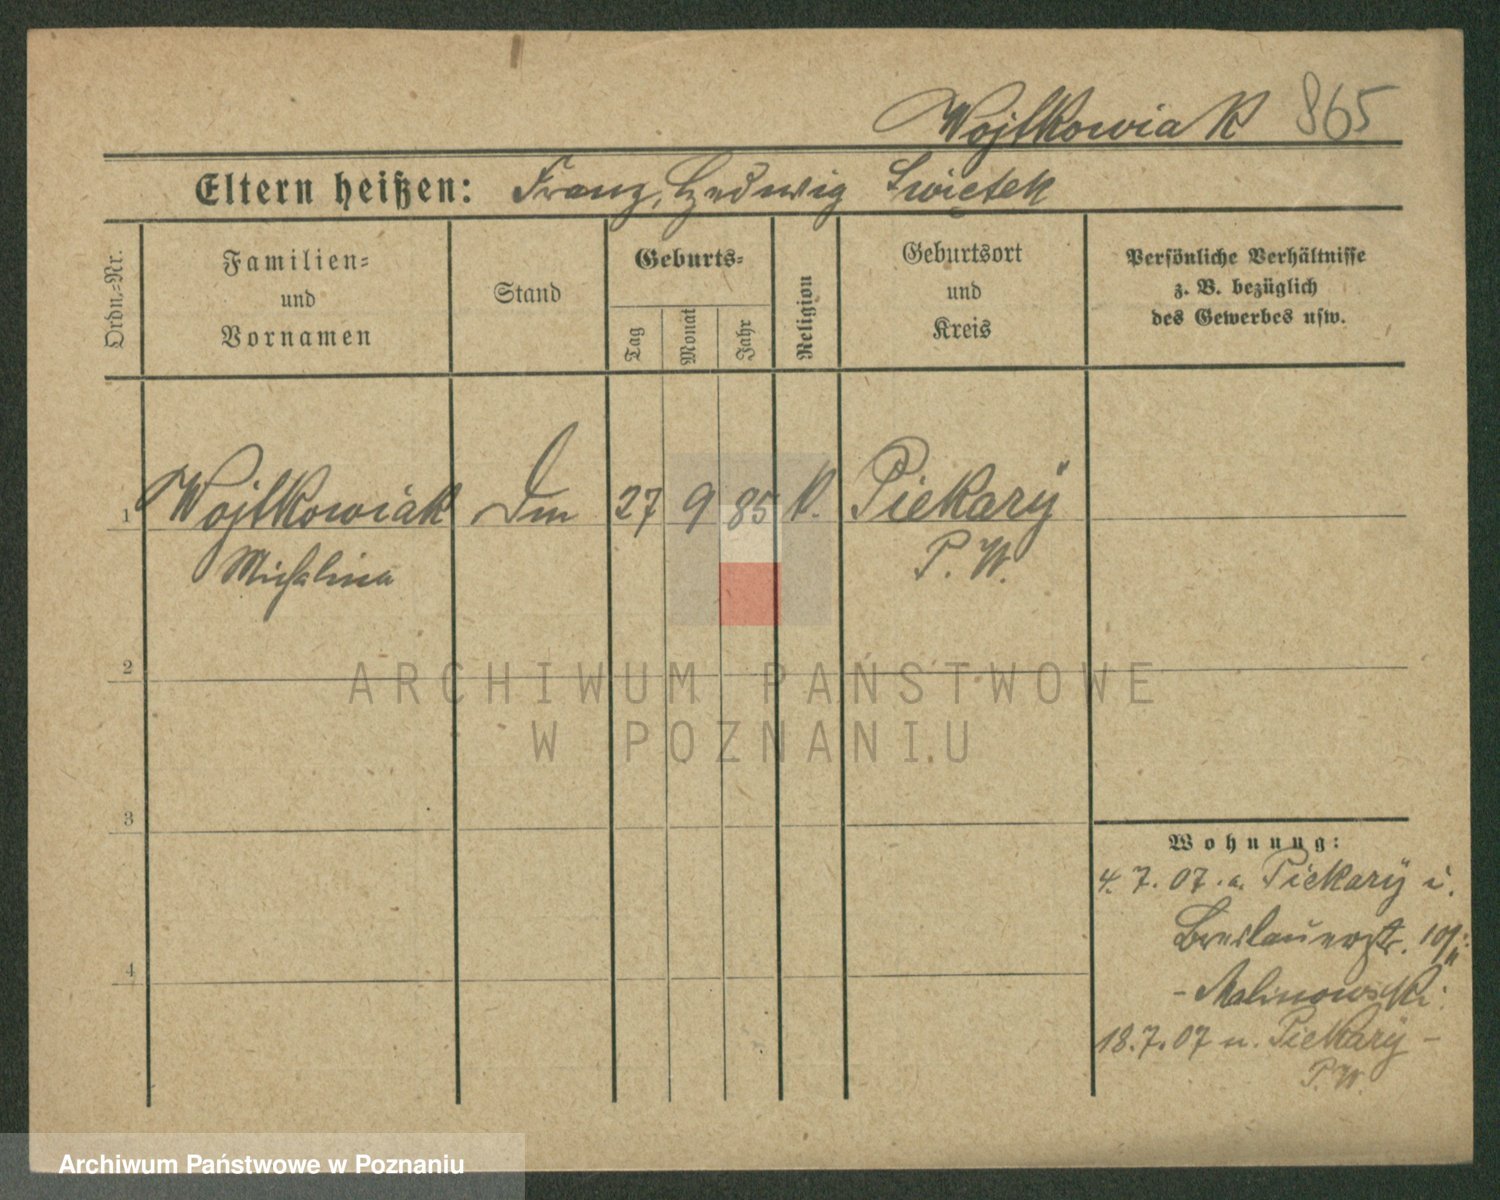 Wojtkowiak 865
Eltern heißen: Franz, Hedwig Swiętek
Ordn.-Nr.
Familien-
und
Vornamen
Stand
Geburts-
Tag
Monat
Jahr
Religion
Geburtsort
und
Kreis
Persönliche Verhältnisse
z. B. bezüglich
des Gewerbes usw.
1 Wojtkowiak Dm 27 9 85 k. Piekary
Michalina P. W.
2
ARCHIWUM PAŃSTWOWE
W POZNANIU
3
4
Wohnung:
4. 7. 07. a. Piekary i.
Breslauerstr.
- Malinowski.
18. 7. 07 n. Piekary -
P. W.
Archiwum Państwowe w Poznaniu